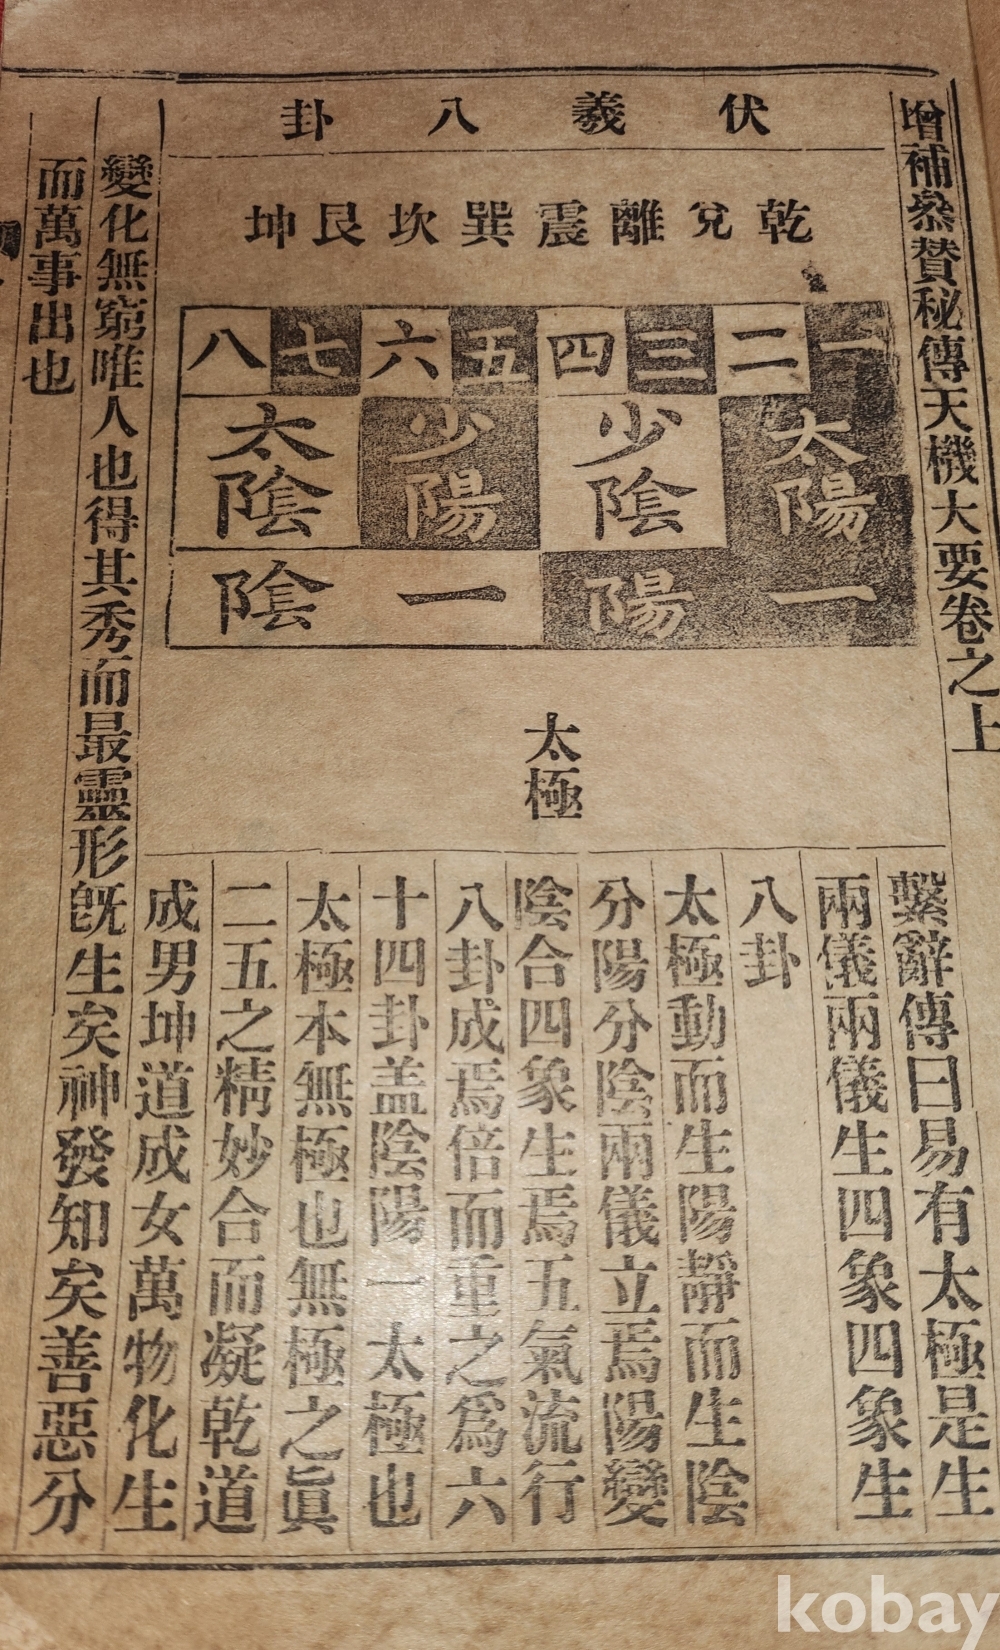 增補叅賛秘傳天機大要卷之上
伏羲八卦
乾兌離震巽坎艮坤
一二三四五六七八
太陽少陰少陽太陰
一陽一陰
太極
繫辭傳曰易有太極是生
兩儀兩儀生四象四象生
八卦
太極動而生陽靜而生陰
分陽分陰兩儀立焉陽變
陰合四象生焉五氣流行
八卦成焉倍而重之爲六
十四卦盖陰陽一太極也
太極本無極也無極之眞
二五之精妙合而凝乾道
成男坤道成女萬物化生
變化無窮唯人也得其秀而最靈形旣生矣神發知矣善惡分
而萬事出也
kobay